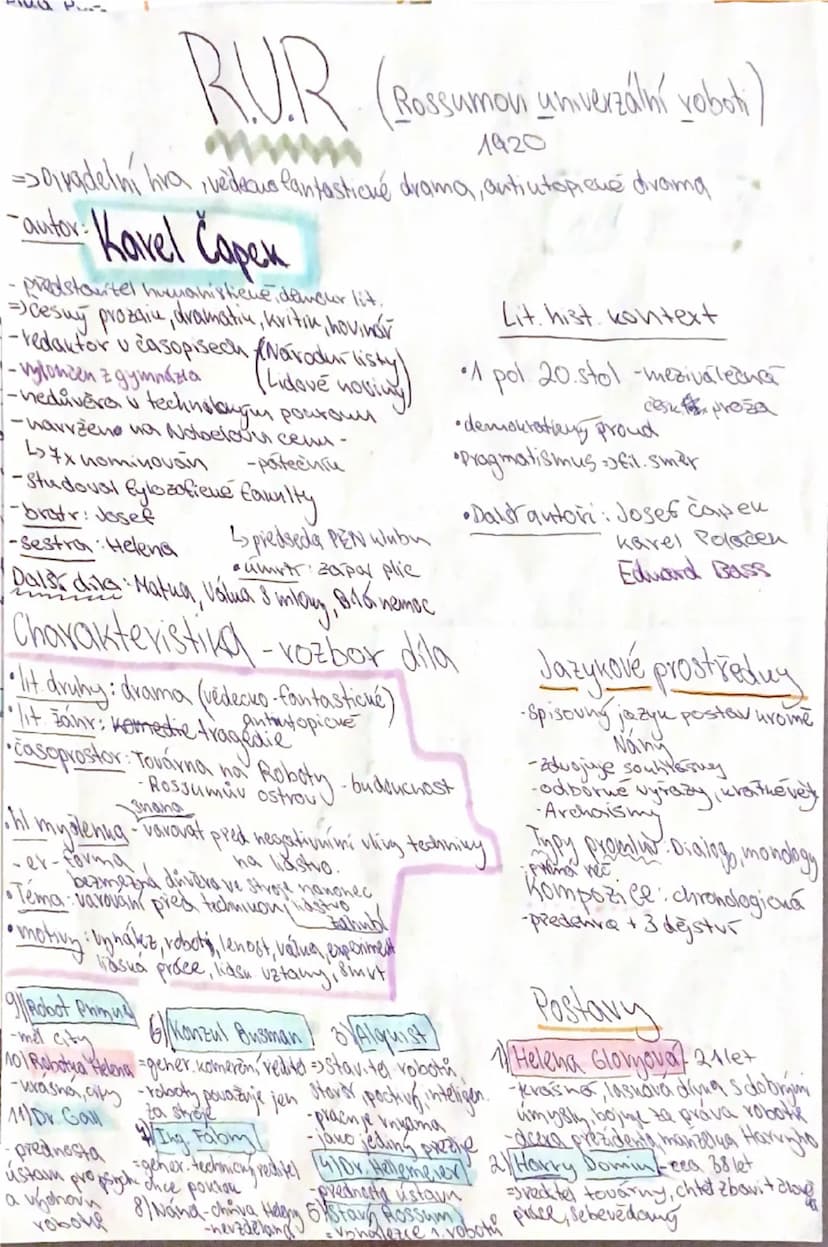 R.U.R (Rossumovi univerzální roboti)
1920
=> Divadelní hra, vědeckofantastické drama, antiutopické drama
- autor: Karel Čapek
- představitel humanistické, demokr lit.
=> český prozaik, dramatik, kritik, novinář
- redaktor v časopisech (Národní listy)
(Lidové noviny)
- vyloučen z gymnázia
- nedůvěra v technologickým pokrokům
- navrženo na Nobelovu cenu -
↳ 7x nominován - pátečníci
- studoval fylozofické fakulty
- bratr: Josef
- sestra: Helena
↳ předseda PEN klubu
• úmrtí: zápal plic
Další díla: Matka, Válka s mloky, Bílá nemoc
Lit. hist. kontext
• 1 pol 20. stol - meziválečná
česká próza
• demokratický proud
• Pragmatismus => fil. směr
• Další autoři: Josef Čapek
Karel Poláček
Eduard Bass
Charakteristika - rozbor díla
• lit. druhy: drama (vědecko-fantastické)
antiutopické
• lit. žánr: komedie tragédie
• časoprostor: Továrna na Roboty - budoucnost
- Rossumův ostrov
• hl myšlenka - varovat před negativními vlivy techniky
na lidstvo.
- er - forma
bezmezná důvěra ve stroje nakonec
• Téma: varování před technikou lidstvo
zahubí
• motivy: vynález, roboti, lenost, válka, experiment
lidská práce, lidsk vztahy, smrt
Jazykové prostředky
- Spisovný jazyk postav kromě
Nány
- zdvojuje souhlásky
- odborné výrazy, krátké věty
- Archaismy
Typy promluv: Dialog, monology
přímá řeč
Kompozice: chronologická
- předehra + 3 dějství
Postavy
1) Helena Gloryová - 21 let
- krásná, laskavá dívka s dobrými
úmysly, bojuje za práva robotů
- dcera prezidenta, manželka Harryho
2) Harry Domin - cca 38 let
=> ředitel továrny, chtěl zbavit + člověka
práce, sebevědomý
3) Alquist
=> stavitel robotů
starší, poctivý, inteligen.
- pracuje rukama
- jako jediný přežije
4) Dr. Hallemeier
- přednosta ústavu
5) Starý Rossum
= vynálezce 1. robotů
6) Konzul Busman
= gener. komerční ředitel
- roboty považuje jen
za stroje
7) Ing. Fabry
= gener. technický ředitel
- chce pokrok
8) Nána - chůva Heleny
- nevzdělaná
9) Robot Primus
- měl city
10) Robotka Helena
- krásná, city
11) Dr. Gall
- přednosta
ústavu pro psych
a výchovu
robotů